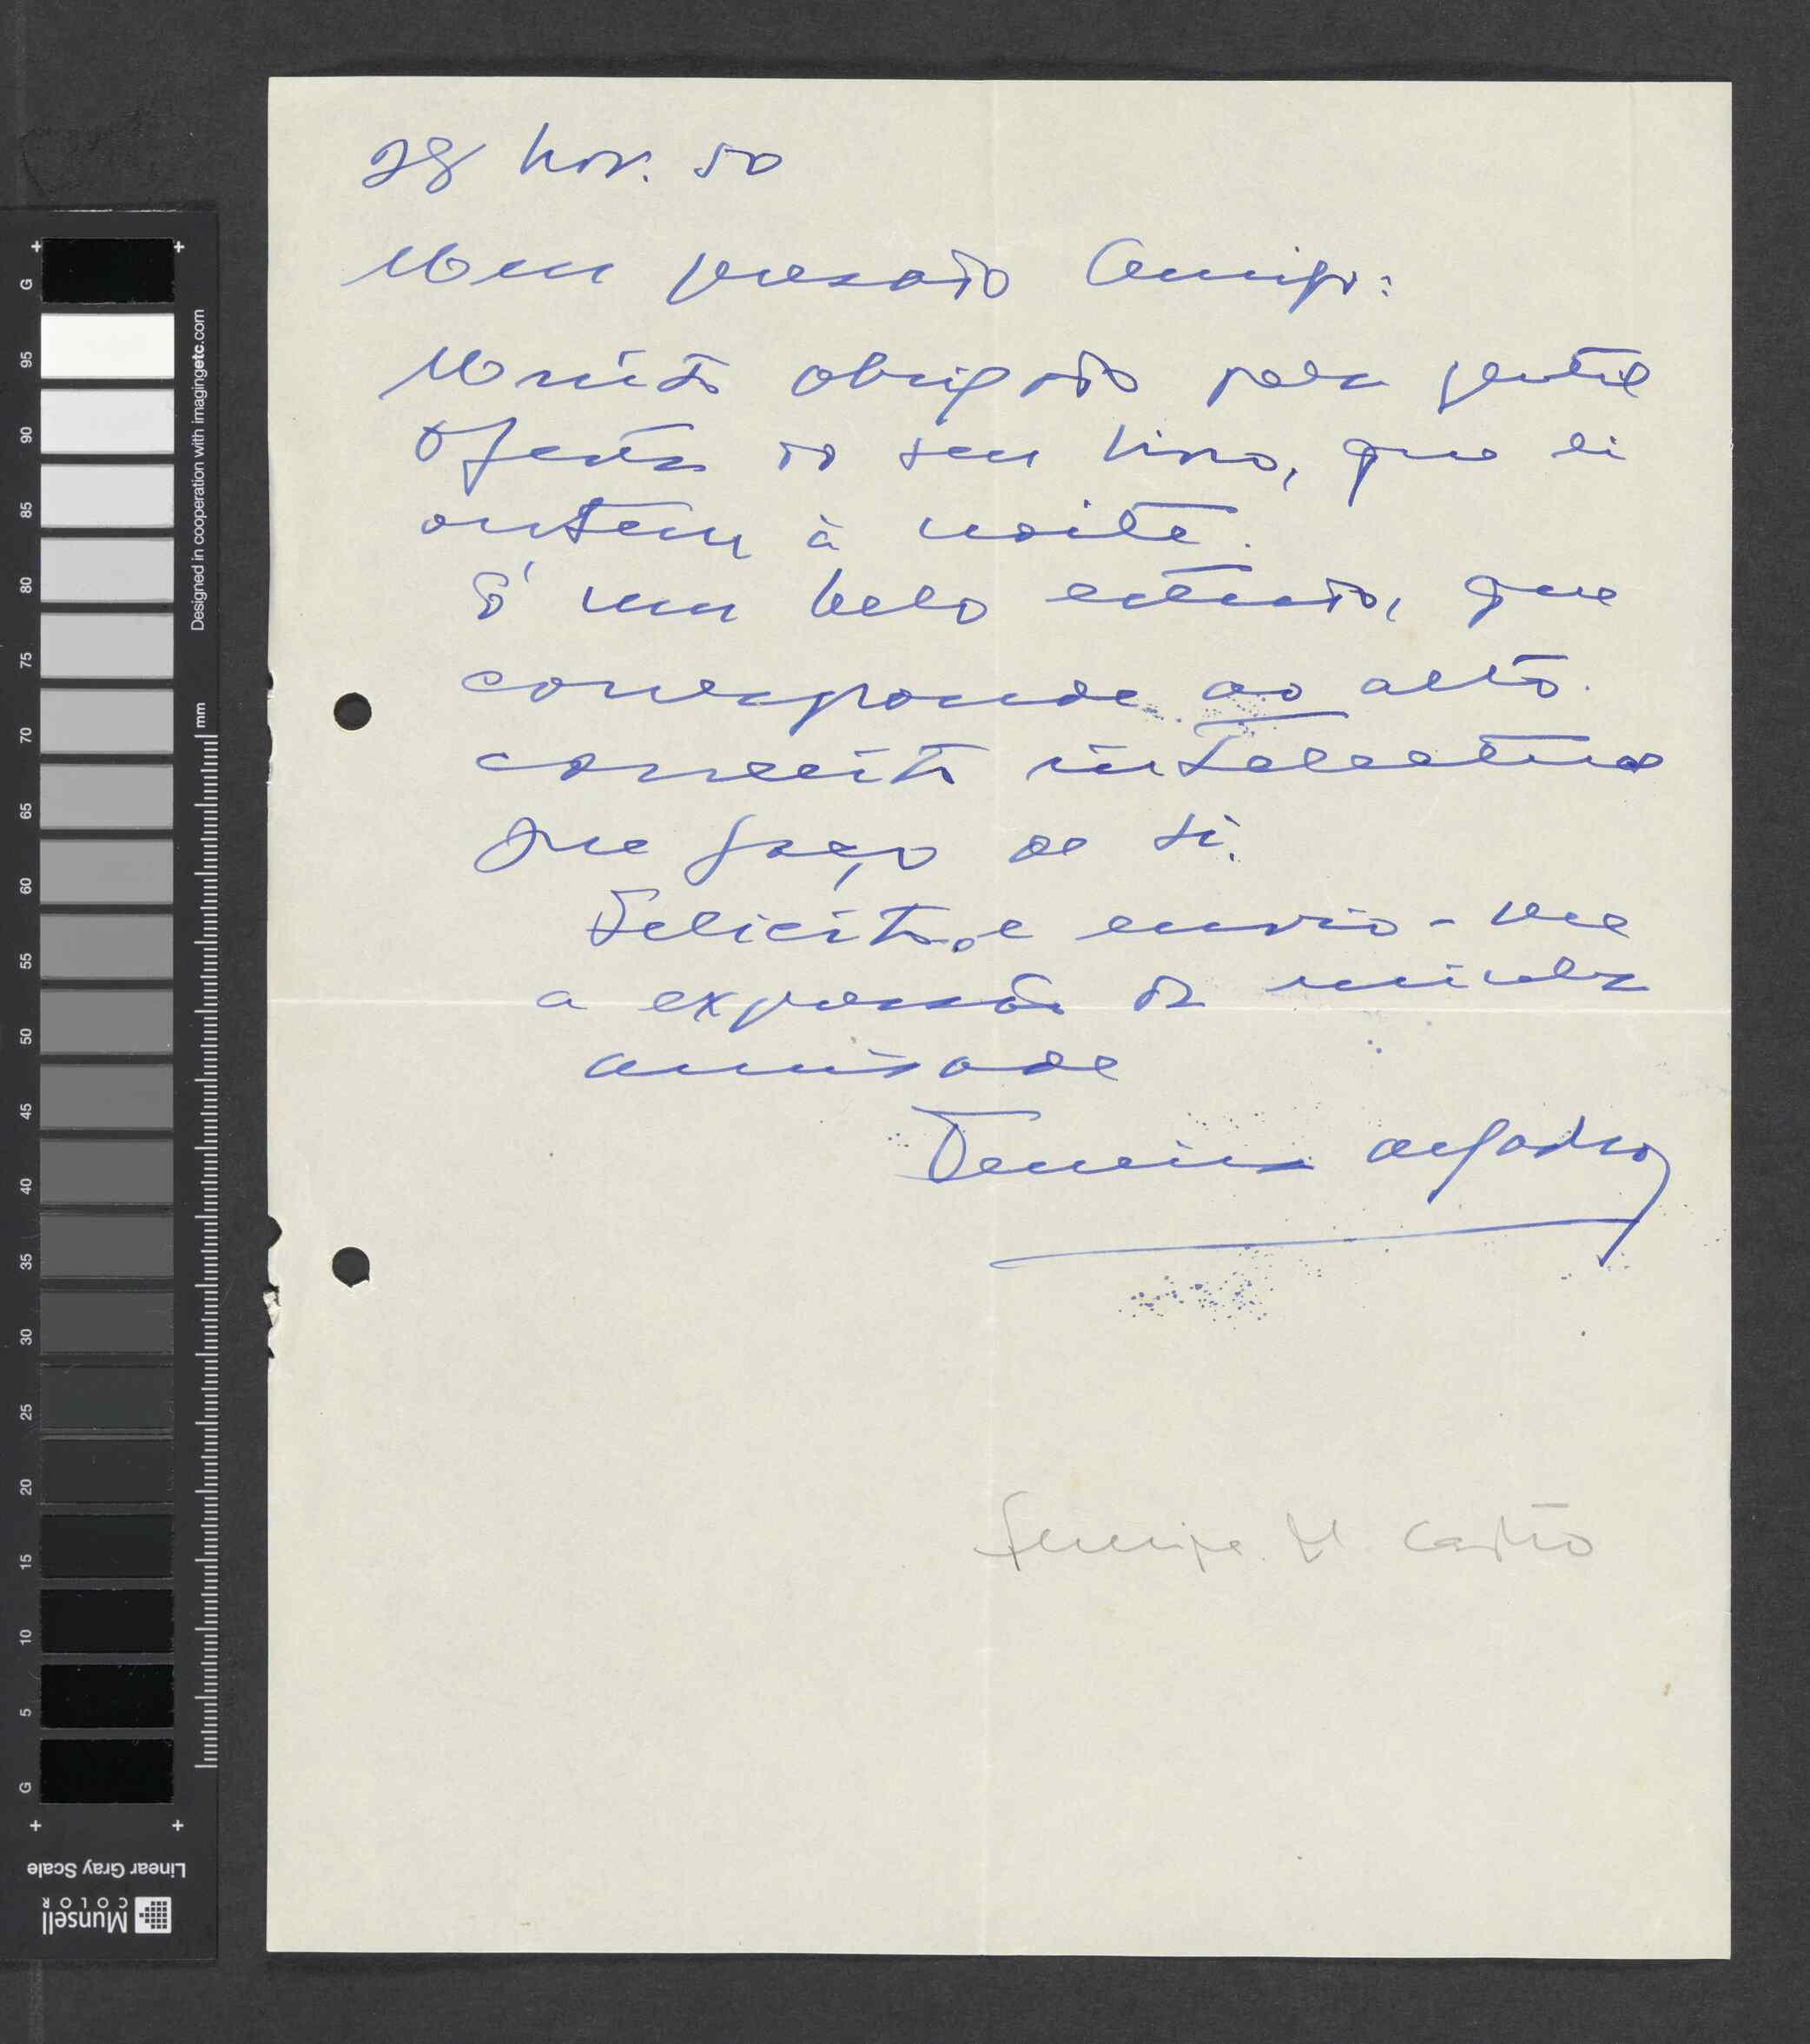 28 nov. 50
Meu prezado Amigo:
Muito obrigado pela gentil
oferta do seu livro, que li
ontem à noite.
É um belo estudo, que
corresponde ao alto
conceito intelectual
que faço de si.
Felicito-o e envio-lhe
a expressão da minha
amizade
Ferreira de Castro
G
95
90
85
80
75
70
65
60
55
50
45
40
35
30
25
20
15
10
5
G
Designed in cooperation with imagingetc.com
mm
Linear Gray Scale
Munsell
COLOR